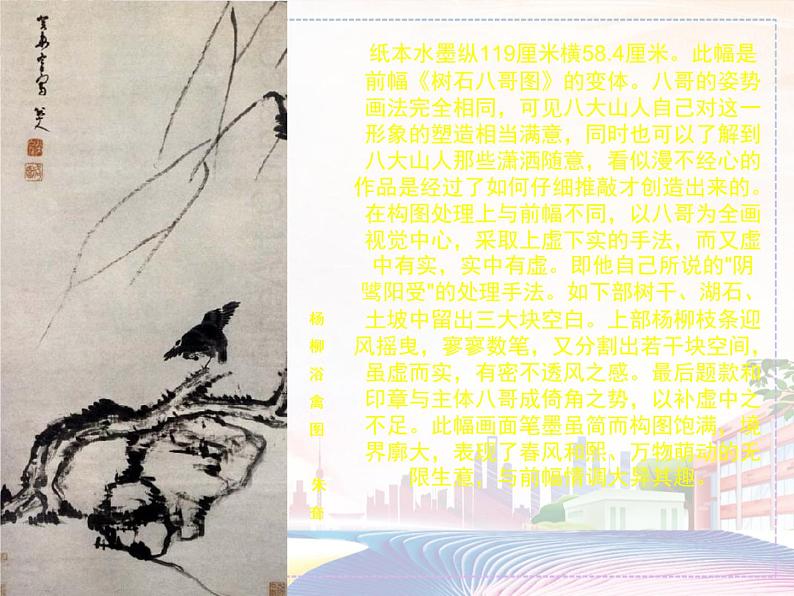 癸未
八大山人
纸本水墨纵119厘米横58.4厘米。此幅是
前幅《树石八哥图》的变体。八哥的姿势
画法完全相同，可见八大山人自己对这一
形象的塑造相当满意，同时也可以了解到
八大山人那些潇洒随意，看似漫不经心的
作品是经过了如何仔细推敲才创造出来的。
在构图处理上与前幅不同，以八哥为全画
视觉中心，采取上虚下实的手法，而又虚
中有实，实中有虚。即他自己所说的"阴
骘阳受"的处理手法。如下部树干、湖石、
土坡中留出三大块空白。上部杨柳枝条迎
风摇曳，寥寥数笔，又分割出若干块空间，
虽虚而实，有密不透风之感。最后题款和
印章与主体八哥成倚角之势，以补虚中之
不足。此幅画面笔墨虽简而构图饱满，境
界廓大，表现了春风和熙、万物萌动的无
限生意，与前幅情调大异其趣。
杨柳浴禽图 朱耷